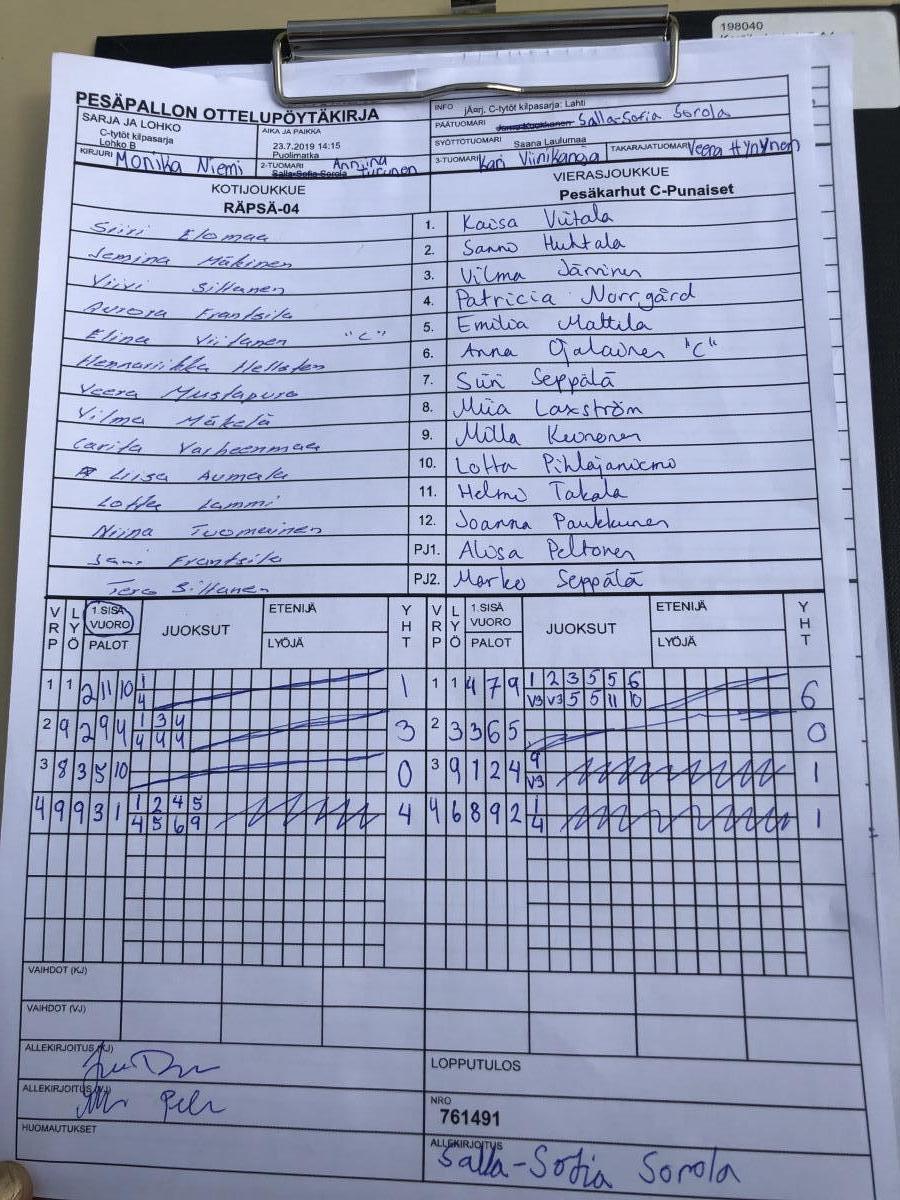 198040
PESÄPALLON OTTELUPÖYTÄKIRJA
SARJA JA LOHKO
C-tytöt kilpasarja
Lohko B
AIKA JA PAIKKA
23.7.2019 14:15
Puolimatka
INFO jÄarj, C-tytöt kilpasarja: Lahti
PÄÄTUOMARI Salla-Sofia Sorola
SYÖTTÖTUOMARI Saana Laulumaa
KIRJURI Monika Niemi
2-TUOMARI Salla-Sofia Sorola Anniina Turunen
3-TUOMARI Kari Viinikangas
TAKARAJATUOMARI Veera Hynynen
KOTIJOUKKUE
RÄPSÄ-04
VIERASJOUKKUE
Pesäkarhut C-Punaiset
Siiri Elomaa 1. Kaisa Viitala
Jemina Mäkinen 2. Sanno Huhtala
Viivi Siltanen 3. Vilma Järvinen
Aurora Frantsila 4. Patricia Norrgård
Elina Viitanen "C" 5. Emilia Mattila
Hennariikka Hellsten 6. Anna Ojalainen "C"
Veera Mustapuro 7. Siiri Seppälä
Vilma Mäkelä 8. Miia Laxström
Carita Varheenmaa 9. Milla Keinonen
Liisa Aumala 10. Lotta Pihlajaniemi
Lotta Lammi 11. Helmi Takala
Niina Tuomainen 12. Joanna Paukkunen
Jani Frantsila PJ1. Aliisa Peltonen
Tero Siltanen PJ2. Marko Seppälä
VRP LYÖ 1.SISÄ VUORO PALOT JUOKSUT ETENIJÄ LYÖJÄ YHT VRP LYÖ 1.SISÄ VUORO PALOT JUOKSUT ETENIJÄ LYÖJÄ YHT
1 1 2 11 10 1 1 1 1 4 7 9 1 2 3 5 5 6 6
4 V3 V3 5 5 11 10
2 9 2 9 4 1 3 4 3 2 3 3 6 5 0
4 4 4
3 8 3 5 10 0 3 9 1 2 4 9 1
V3
4 9 9 3 1 1 2 4 5 4 4 6 8 9 2 1 1
4 5 6 9 4
VAIHDOT (KJ)
VAIHDOT (VJ)
ALLEKIRJOITUS (KJ)
LOPPUTULOS
ALLEKIRJOITUS (VJ)
NRO
761491
HUOMAUTUKSET
ALLEKIRJOITUS
Salla-Sofia Sorola